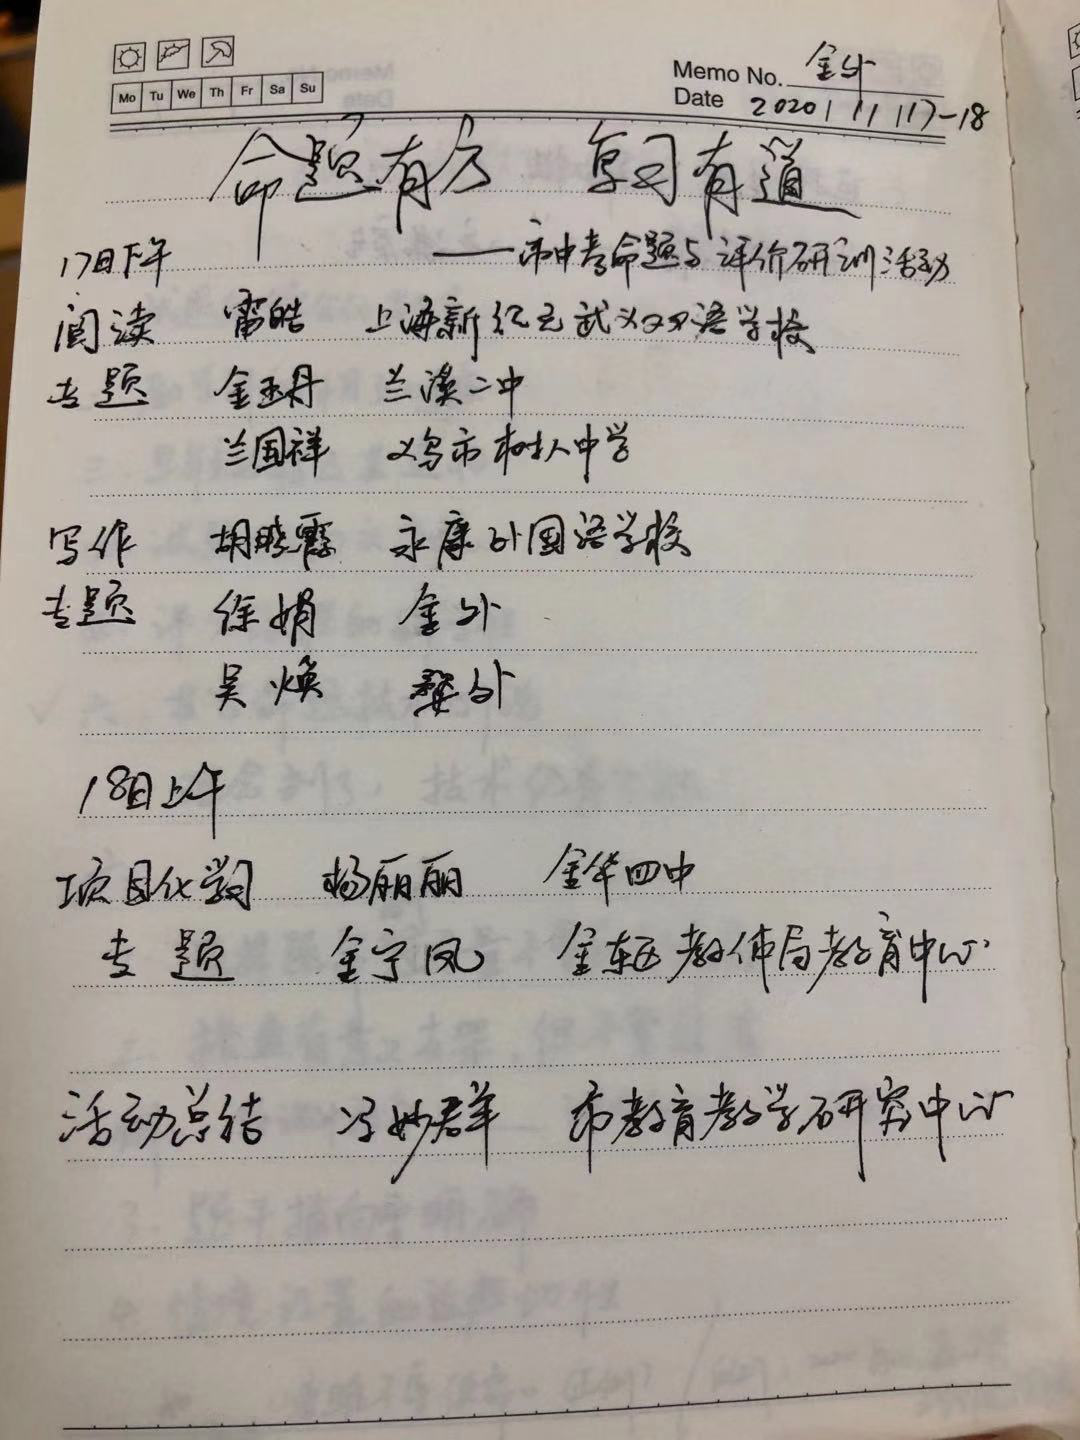 Mo Tu We Th Fr Sa Su
Memo No. 金外
Date 2020/11/17-18
命题有方 复习有道
——市中考命题与评价研训活动
17日下午
阅读 雷皓 上海新纪元武义双语学校
专题 金玉丹 兰溪二中
兰国祥 义乌市树人中学
写作 胡晓霞 永康外国语学校
专题 徐娟 金外
吴焕 婺外
18日上午
项目化学习 杨丽丽 金华四中
专题 金宁凤 金东区教体局教育中心
活动总结 冯妙群 市教育教学研究中心